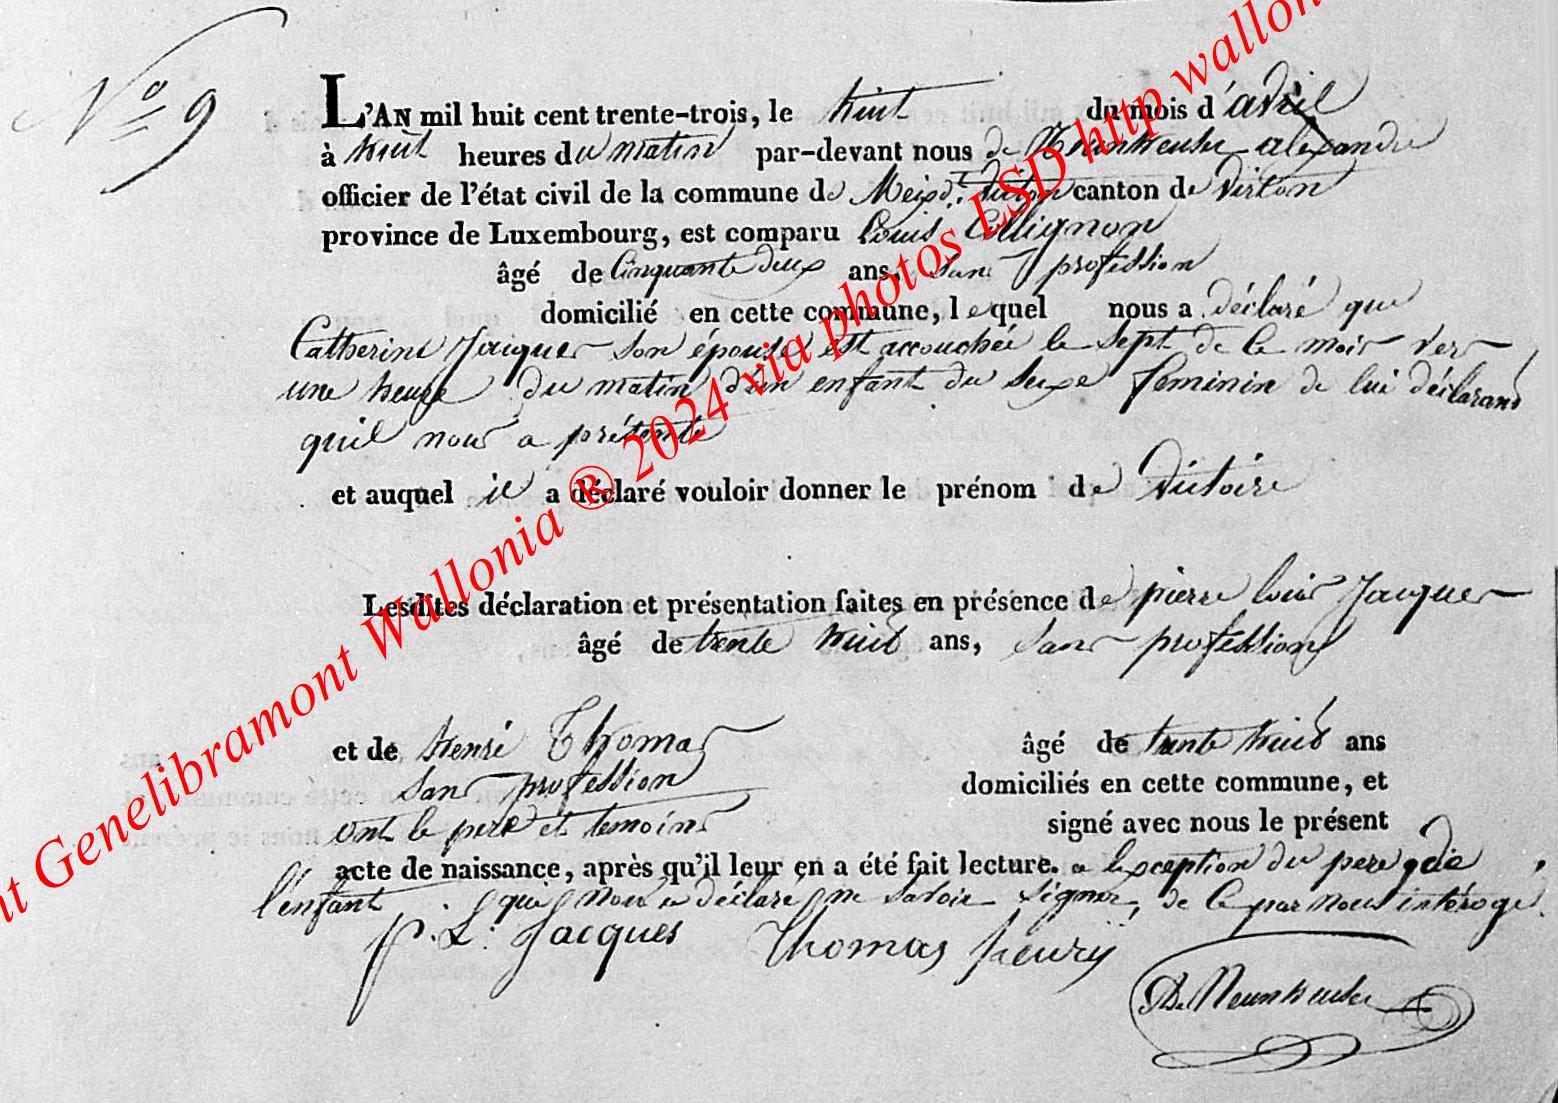 N° 9
L'AN mil huit cent trente-trois, le huit du mois d'avril
à huit heures du matin par-devant nous de Neunheuser alexandre
officier de l'état civil de la commune de Meix dt. virton canton de Virton
province de Luxembourg, est comparu Louis Collignon
âgé de Cinquante deux ans, sans profession
domicilié en cette commune, lequel nous a déclaré que
Catherine Jacques son épouse est accouchée le sept de ce mois vers
une heure du matin d'un enfant du sexe feminin de lui déclarant
quil nous a présenté
et auquel il a déclaré vouloir donner le prénom de Victoire
Lesdites déclaration et présentation faites en présence de pierre louis Jacques
âgé de trente huit ans, sans profession
et de henri Thomas âgé de trente huit ans
sans profession domiciliés en cette commune, et
ont le pere et temoins signé avec nous le présent
acte de naissance, après qu'il leur en a été fait lecture. a lexception du pere de
l'enfant qui nous a déclaré ne savoir signer, de ce par nous intérogé.
P. L. Jacques Thomas heurij
De Neunheuser
nt Genelibramont Wallonia ® 2024 via photos LSD http wallon